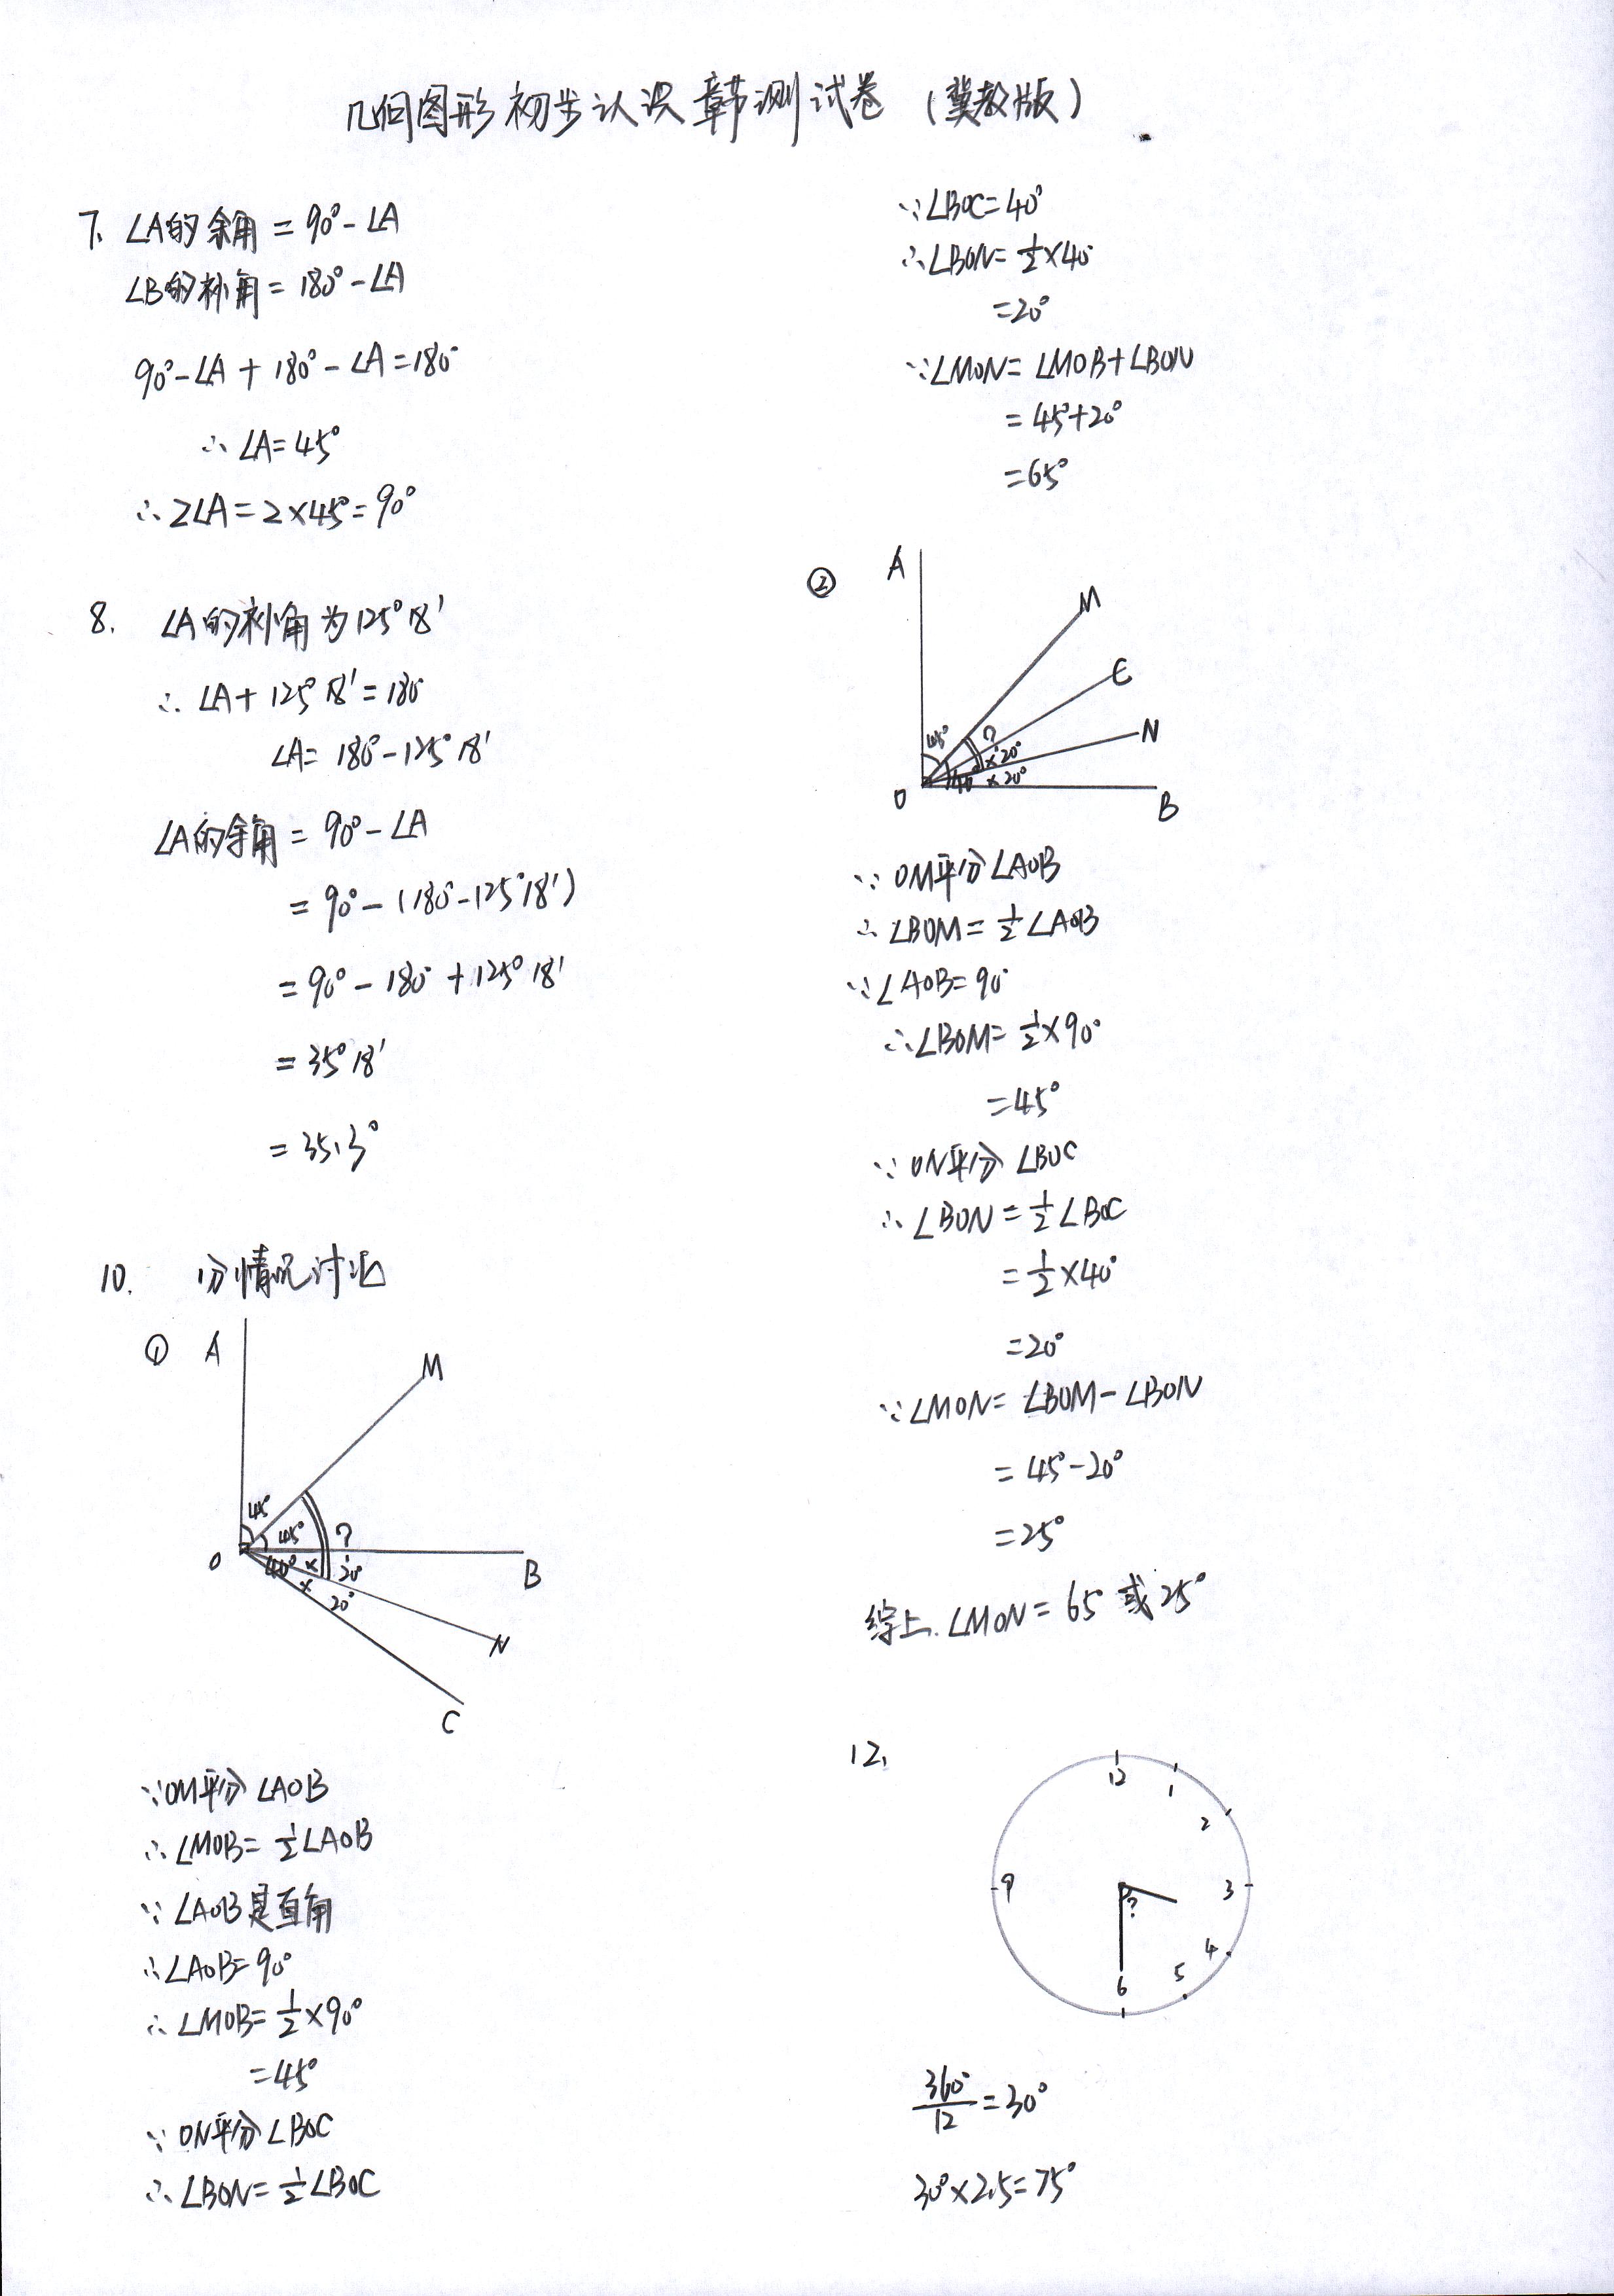 几何图形初步认识章节测试卷（冀教版）
7. ∠A的余角 = 90° - ∠A
∠B的补角 = 180° - ∠A
90° - ∠A + 180° - ∠A = 180°
∴ ∠A = 45°
∴ 2∠A = 2 × 45° = 90°
8. ∠A的补角为125°18′
∴ ∠A + 125°18′ = 180°
∠A = 180° - 125°18′
∠A的余角 = 90° - ∠A
= 90° - (180° - 125°18′)
= 90° - 180° + 125°18′
= 35°18′
= 35.3°
10. 分情况讨论
① A
M
45°
45° ?
O 40° × 20° B
× 20°
N
C
∵ OM平分∠AOB
∴ ∠MOB = ½∠AOB
∵ ∠AOB是直角
∴ ∠AOB = 90°
∴ ∠MOB = ½ × 90°
= 45°
∵ ON平分∠BOC
∴ ∠BON = ½∠BOC
∵ ∠BOC = 40°
∴ ∠BON = ½ × 40°
= 20°
∵ ∠MON = ∠MOB + ∠BON
= 45° + 20°
= 65°
② A
M
C
45° ? N
× 20°
40° × 20°
O B
∵ OM平分∠AOB
∴ ∠BOM = ½∠AOB
∵ ∠AOB = 90°
∴ ∠BOM = ½ × 90°
= 45°
∵ ON平分∠BOC
∴ ∠BON = ½∠BOC
= ½ × 40°
= 20°
∵ ∠MON = ∠BOM - ∠BON
= 45° - 20°
= 25°
综上. ∠MON = 65° 或 25°
12.
12
1
2
9 3
?
4
5
6
360°/12 = 30°
30° × 2.5 = 75°